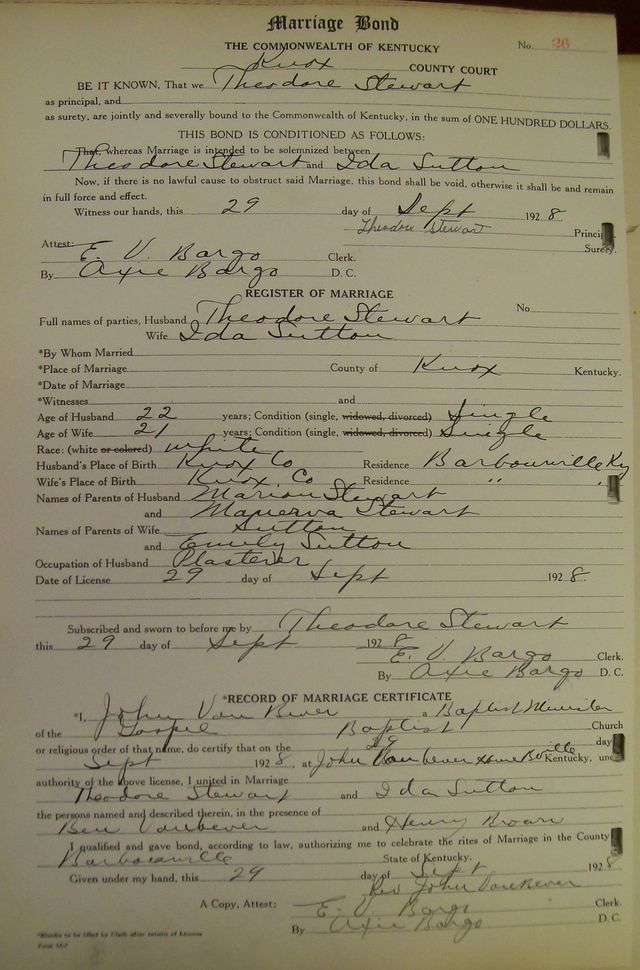 Marriage Bond
THE COMMONWEALTH OF KENTUCKY No. 26
Knox COUNTY COURT
BE IT KNOWN, That we Theodore Stewart
as principal, and
as surety, are jointly and severally bound to the Commonwealth of Kentucky, in the sum of ONE HUNDRED DOLLARS.
THIS BOND IS CONDITIONED AS FOLLOWS:
That, whereas Marriage is intended to be solemnized between
Theodore Stewart and Ida Sutton
Now, if there is no lawful cause to obstruct said Marriage, this bond shall be void, otherwise it shall be and remain
in full force and effect.
Witness our hands, this 29 day of Sept 1928.
Theodore Stewart Principal
Surety.
Attest: E. V. Bargo Clerk.
By Axie Bargo D. C.
REGISTER OF MARRIAGE
Full names of parties, Husband Theodore Stewart No.
Wife Ida Sutton
*By Whom Married
*Place of Marriage County of Knox Kentucky.
*Date of Marriage
*Witnesses and
Age of Husband 22 years; Condition (single, widowed, divorced) Single
Age of Wife 21 years; Condition (single, widowed, divorced) Single
Race: (white or colored) white
Husband's Place of Birth Knox Co Residence Barbourville Ky
Wife's Place of Birth Knox Co Residence " "
Names of Parents of Husband Marion Stewart
and Manerva Stewart
Names of Parents of Wife Sutton
and Emily Sutton
Occupation of Husband Plasterer
Date of License 29 day of Sept 1928.
Subscribed and sworn to before me by Theodore Stewart
this 29 day of Sept 1928
E. V. Bargo Clerk.
By Axie Bargo D. C.
*RECORD OF MARRIAGE CERTIFICATE
*I, John Van Bever a Baptist Minister
of the Gospel Baptist Church
or religious order of that name, do certify that on the 29 day
Sept 1928, at John Vanbever home Bville Kentucky, und
authority of the above license, I united in Marriage
Theodore Stewart and Ida Sutton
the persons named and described therein, in the presence of
Ben Vanbever and Henry Brown
I qualified and gave bond, according to law, authorizing me to celebrate the rites of Marriage in the County
Barbourville State of Kentucky.
Given under my hand, this 29 day of Sept 1928
Rev John VanBever
A Copy, Attest: E. V. Bargo Clerk.
By Axie Bargo D. C.
*Blanks to be filled by Clerk after return of License